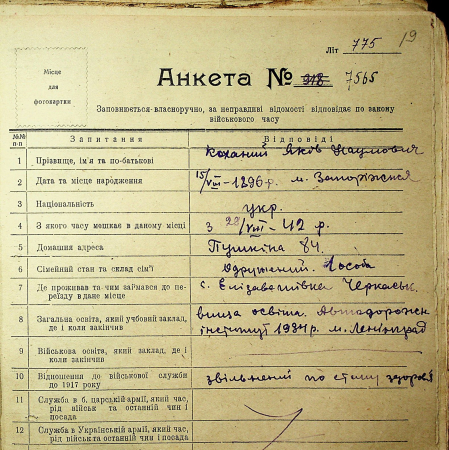 19
Літ 775
Місце
для
фотокартки
Анкета № 918 7565
Заповнюється власноручно, за неправдиві відомості відповідає по закону
військового часу
№№ п-п Запитання Відповіді
1 Прізвище, ім'я та по-батькові Коханий Яків Наумович
2 Дата та місце народження 15/VIII-1896 р. м. Запоріжжя
3 Національність укр.
4 З якого часу мешкає в даному місці З 28/VIII-42 р.
5 Домашня адреса Пушкіна 84.
6 Сімейний стан та склад сім'ї Одружений. особа
7 Де проживав та чим займався до пе-
реїзду в дане місце с. Єлізаветівка Черкаськ
8 Загальна освіта, який учбовий заклад,
де і коли закінчив вища освіта. Автодорожн
інститут 1934 р. м. Ленінград
9 Військова освіта, який заклад, де і
коли закінчив
10 Відношення до військової служби
до 1917 року звільнений по стану здоров'я
11 Служба в б. царській армії, який час,
рід військ та останній чин і
посада
12 Служба в Українській армії, який час,
рід військ та останній чин і посада